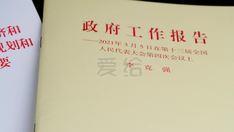 政府工作报告
——2021年3月5日在第十三届全国
人民代表大会第四次会议上
李克强
济和
规划和
要
爱给